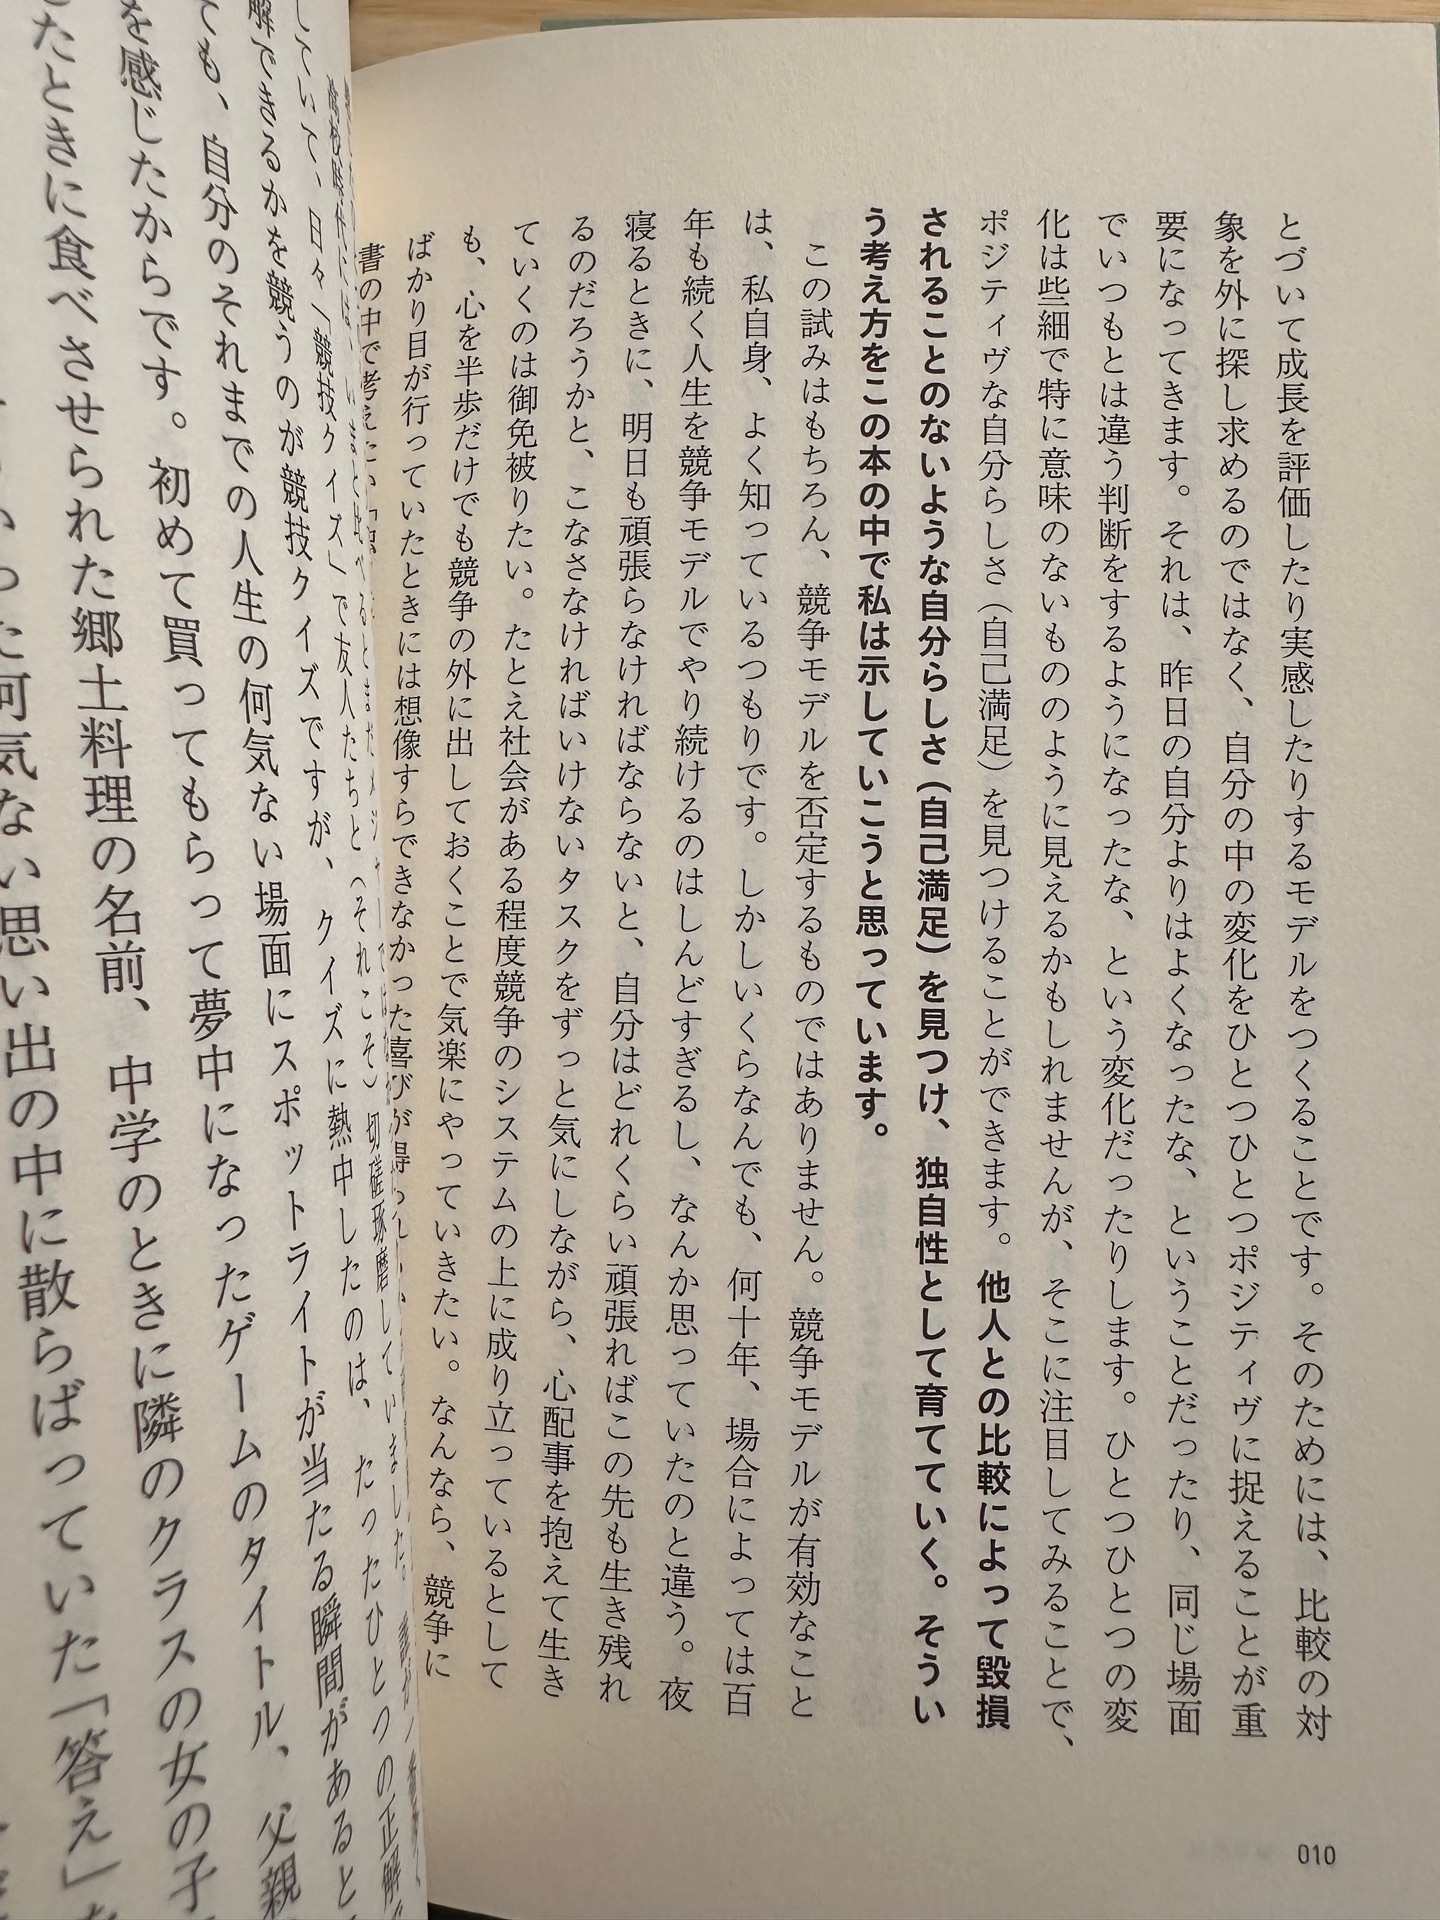 とづいて成長を評価したり実感したりするモデルをつくることです。そのためには、比較の対
象を外に探し求めるのではなく、自分の中の変化をひとつひとつポジティヴに捉えることが重
要になってきます。それは、昨日の自分よりはよくなったな、ということだったり、同じ場面
でいつもとは違う判断をするようになったな、という変化だったりします。ひとつひとつの変
化は些細で特に意味のないもののように見えるかもしれませんが、そこに注目してみることで、
ポジティヴな自分らしさ（自己満足）を見つけることができます。他人との比較によって毀損
されることのないような自分らしさ（自己満足）を見つけ、独自性として育てていく。そうい
う考え方をこの本の中で私は示していこうと思っています。
この試みはもちろん、競争モデルを否定するものではありません。競争モデルが有効なこと
は、私自身、よく知っているつもりです。しかしいくらなんでも、何十年、場合によっては百
年も続く人生を競争モデルでやり続けるのはしんどすぎるし、なんか思っていたのと違う。夜
寝るときに、明日も頑張らなければならないと、自分はどれくらい頑張ればこの先も生き残れ
るのだろうかと、こなさなければいけないタスクをずっと気にしながら、心配事を抱えて生き
ていくのは御免被りたい。たとえ社会がある程度競争のシステムの上に成り立っているとして
も、心を半歩だけでも競争の外に出しておくことで気楽にやっていきたい。なんなら、競争に
ばかり目が行っていたときには想像すらできなかった喜びが得
書の中で考え
010
高校時代には、いまと比べるとまだメジャーではな
していて、日々「競技クイズ」で友人たちと（それこそ）切磋琢磨していました。
解できるかを競うのが競技クイズですが、クイズに熱中したのは、たったひとつの正解
ても、自分のそれまでの人生の何気ない場面にスポットライトが当たる瞬間があると
を感じたからです。初めて買ってもらって夢中になったゲームのタイトル、父親
たときに食べさせられた郷土料理の名前、中学のときに隣のクラスの女の子
った何気ない思い出の中に散らばっていた「答え」